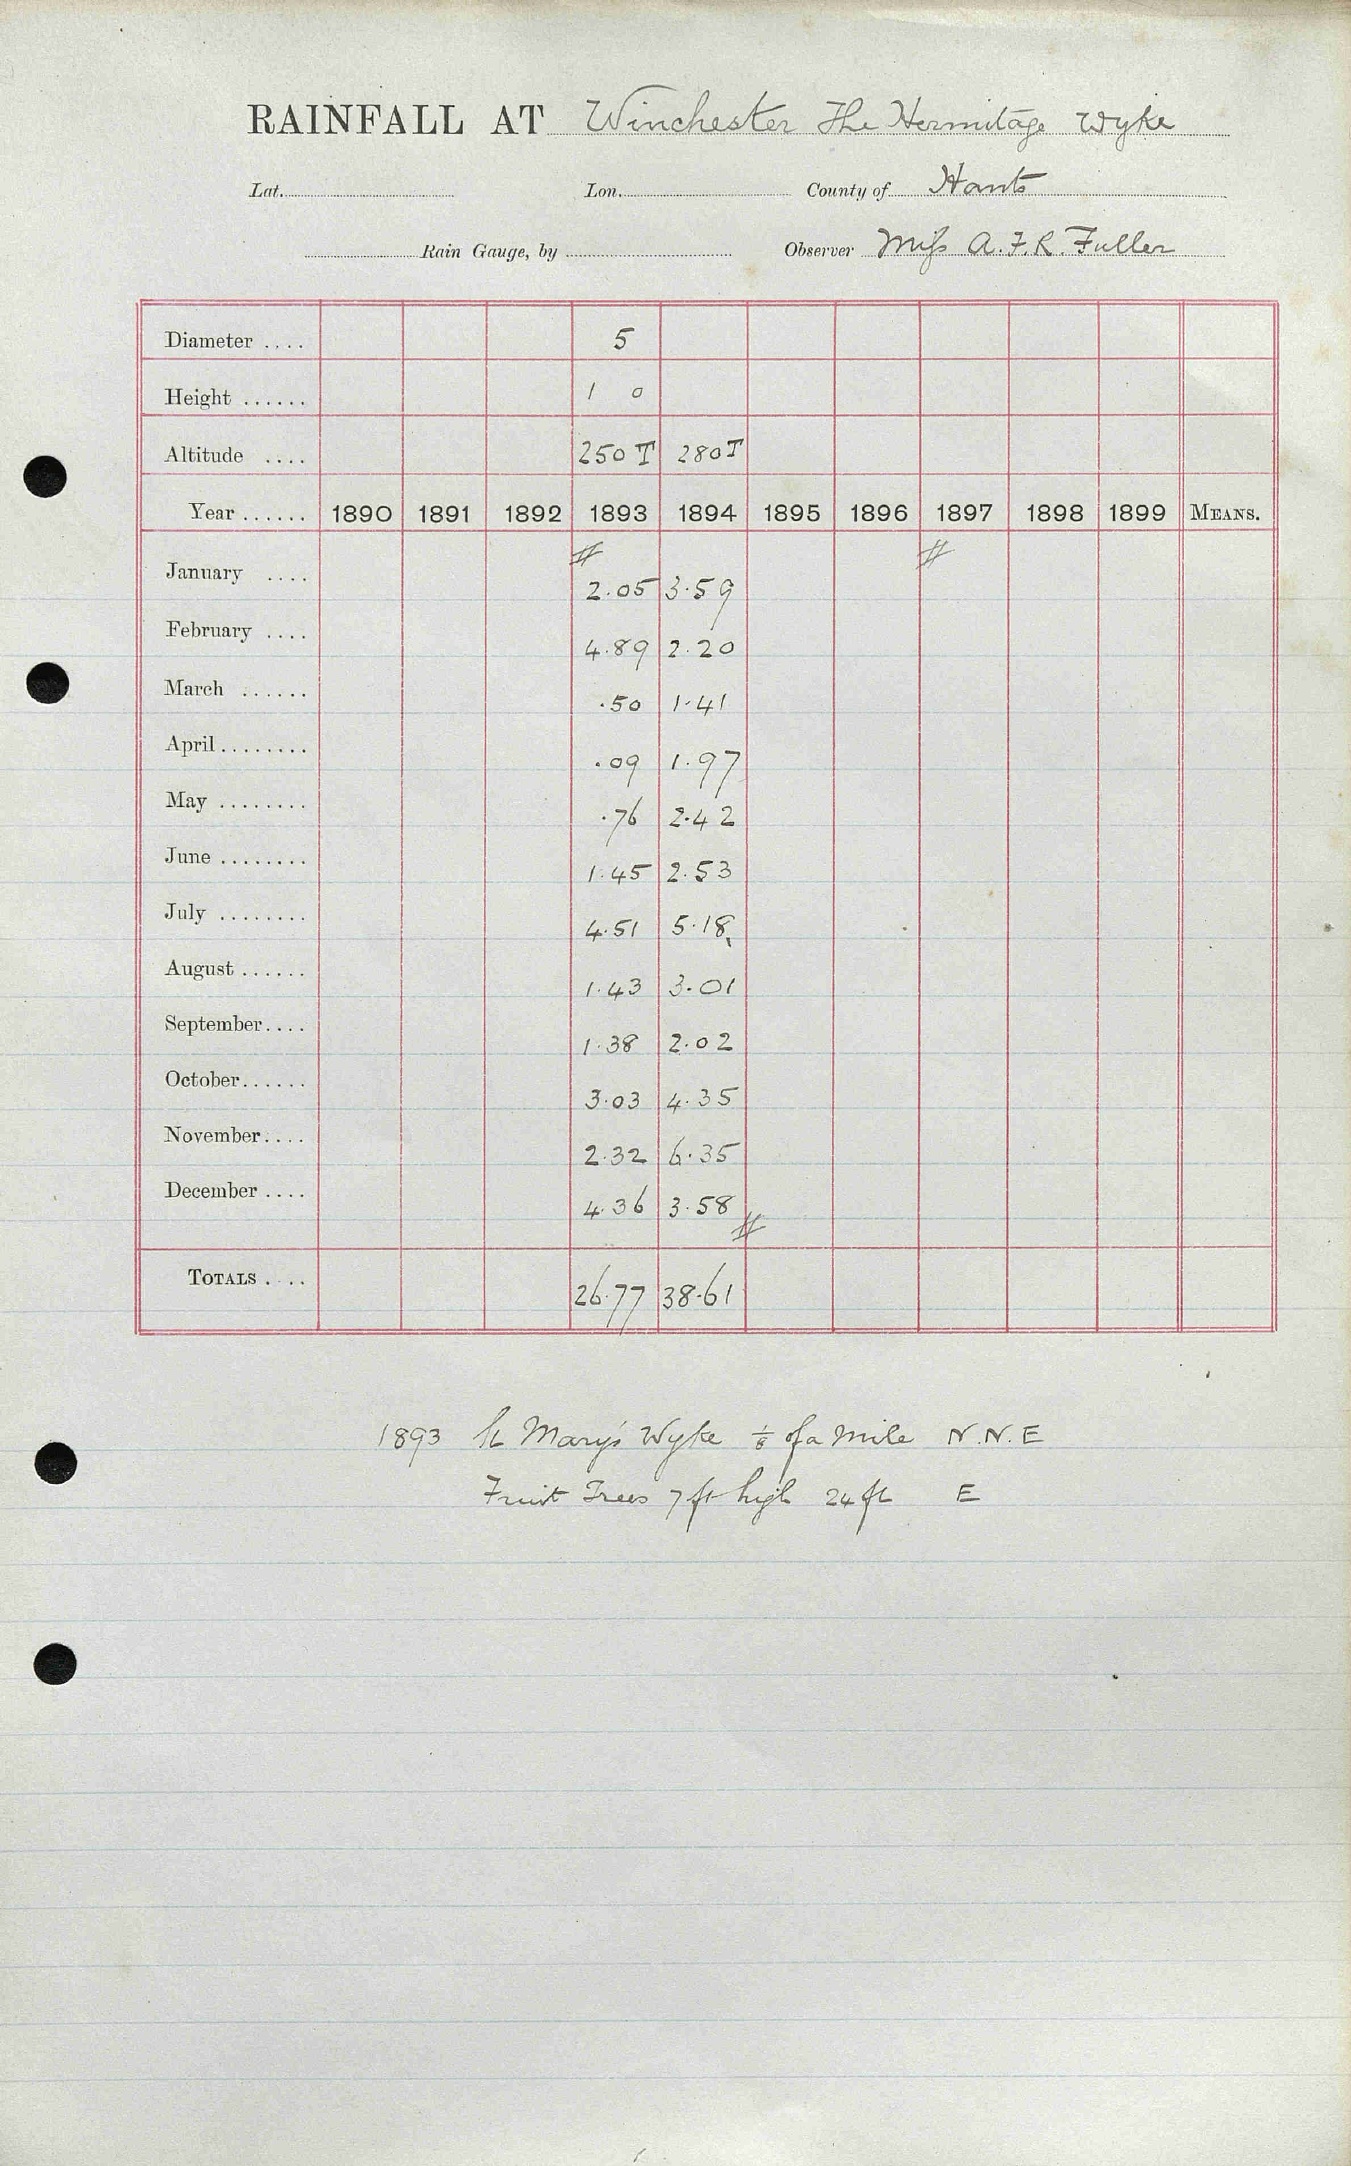 RAINFALL AT Winchester The Hermitage Wyke
Lat. Lon. County of Hants
Rain Gauge, by Observer Miss A. F. R. Fuller
Diameter .... 5
Height ...... 1 0
Altitude .... 250 T 280 T
Year ...... 1890 1891 1892 1893 1894 1895 1896 1897 1898 1899 MEANS.
# #
January .... 2.05 3.59
February .... 4.89 2.20
March ...... .50 1.41
April ........ .09 1.97
May ........ .76 2.42
June ........ 1.45 2.53
July ........ 4.51 5.18
August ...... 1.43 3.01
September.... 1.38 2.02
October...... 3.03 4.35
November.... 2.32 6.35
December .... 4.36 3.58
#
TOTALS .... 26.77 38.61
1893 St Mary's Wyke 1/8 of a mile N.N.E
Fruit Trees 7 ft high 24 ft E